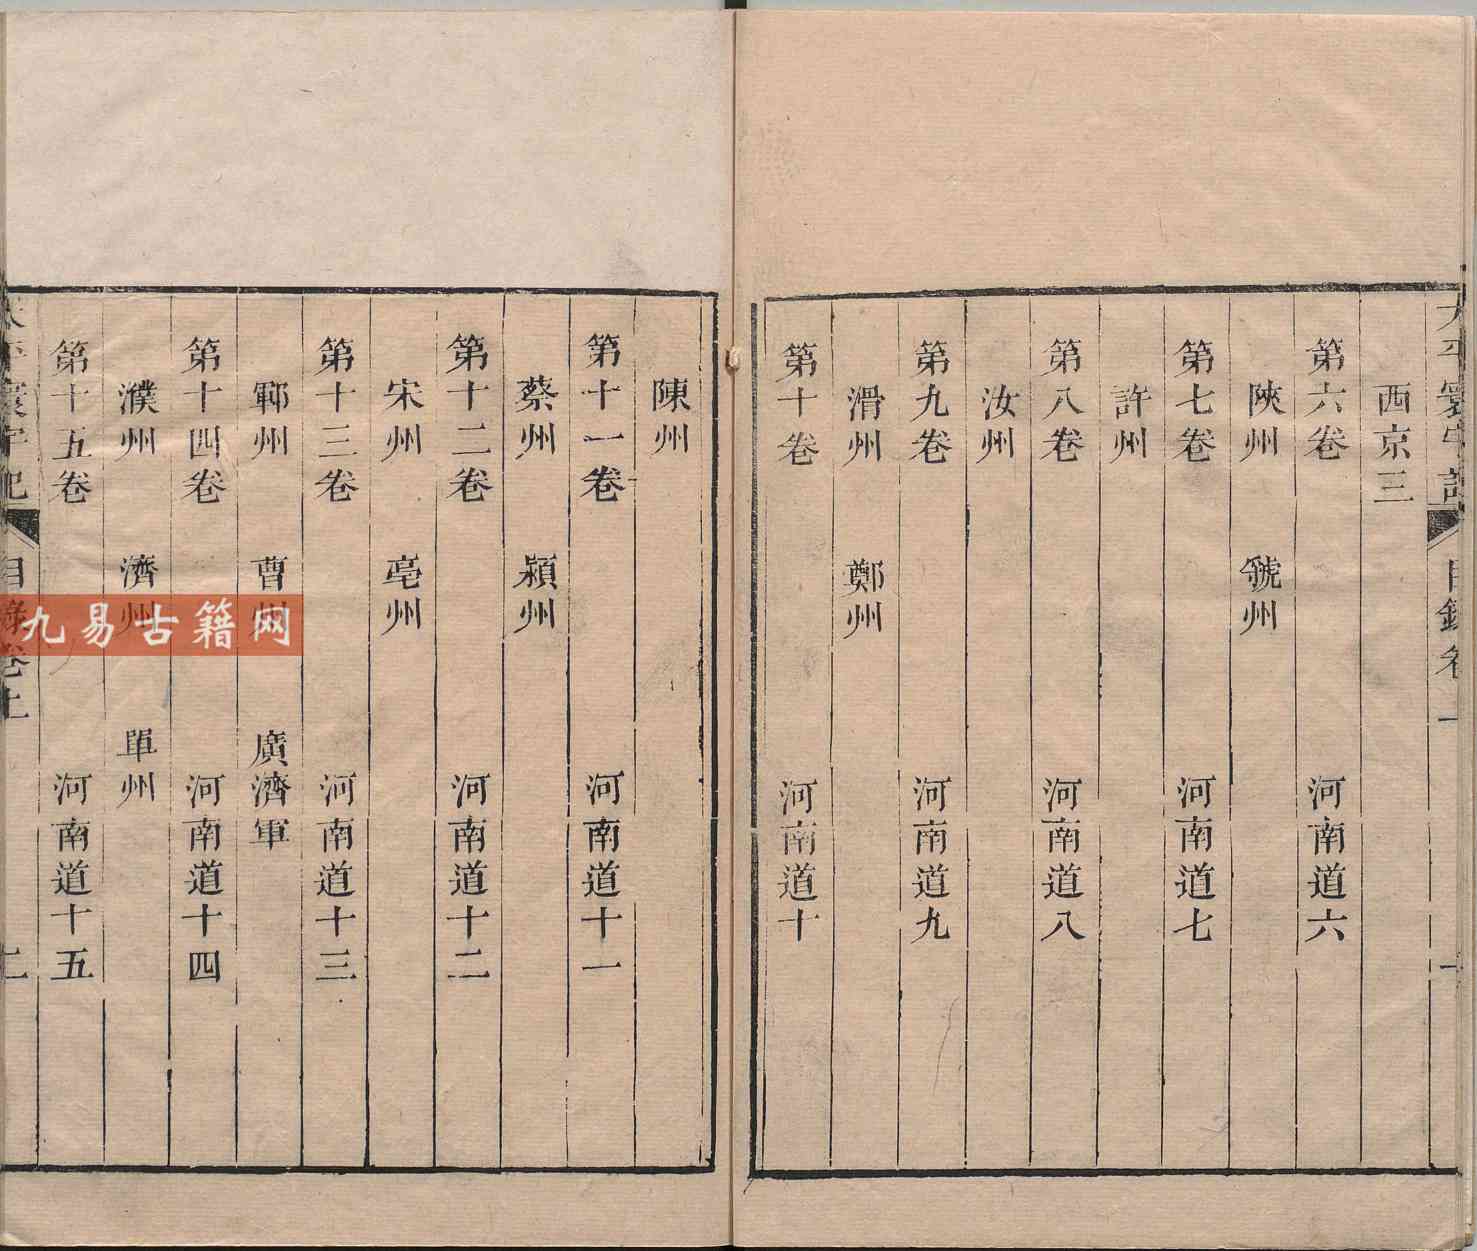 西京三
第六卷 河南道六
陝州 虢州
第七卷 河南道七
許州
第八卷 河南道八
汝州
第九卷 河南道九
滑州 鄭州
第十卷 河南道十
陳州
第十一卷 河南道十一
蔡州 潁州
第十二卷 河南道十二
宋州 亳州
第十三卷 河南道十三
鄆州 曹州 廣濟軍
第十四卷 河南道十四
濮州 濟州 單州
第十五卷 河南道十五
九易古籍网